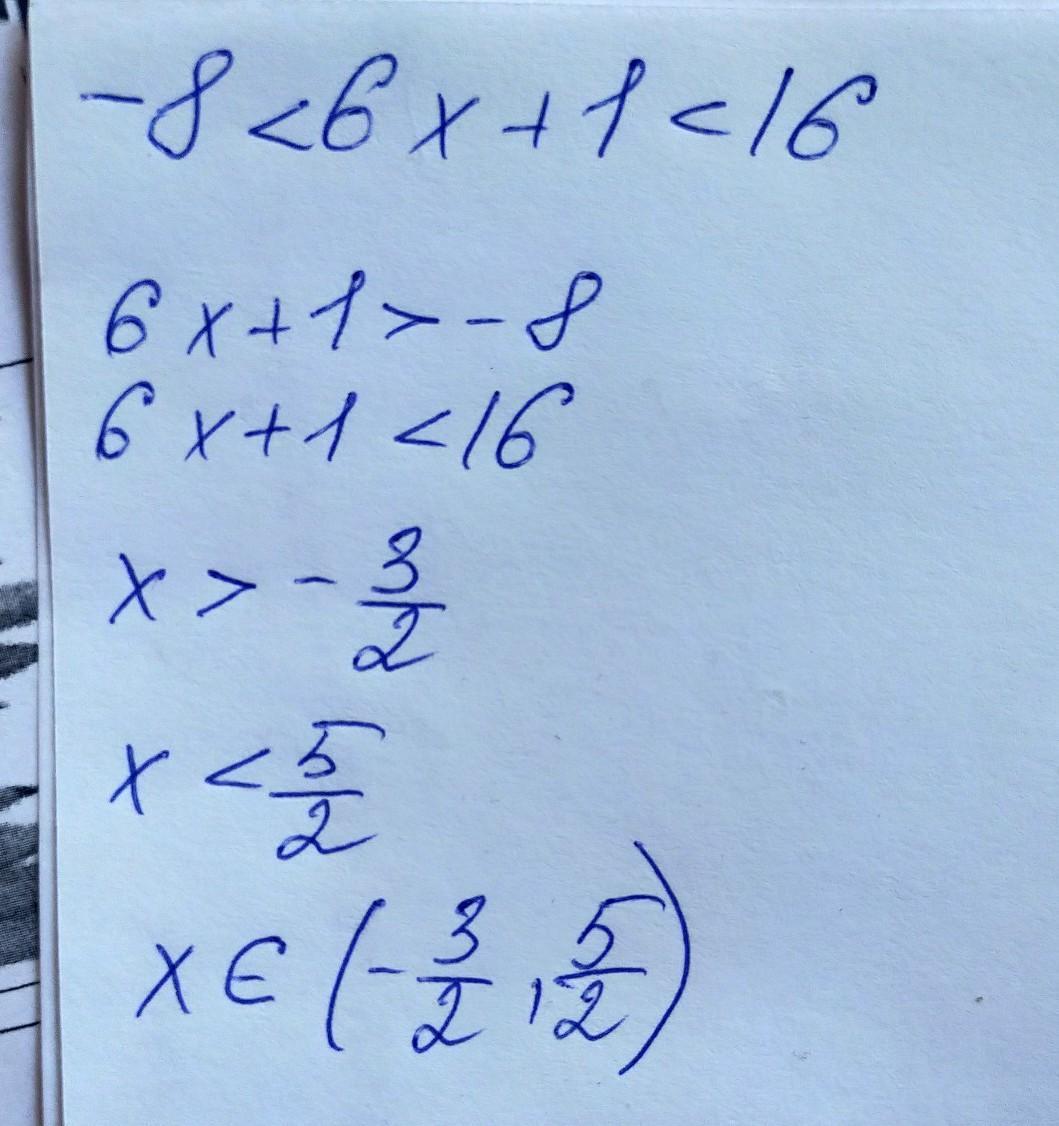 -8<6x+1<16
6x+1>-8
6x+1<16
x>-3/2
x<5/2
x∈(-3/2,5/2)